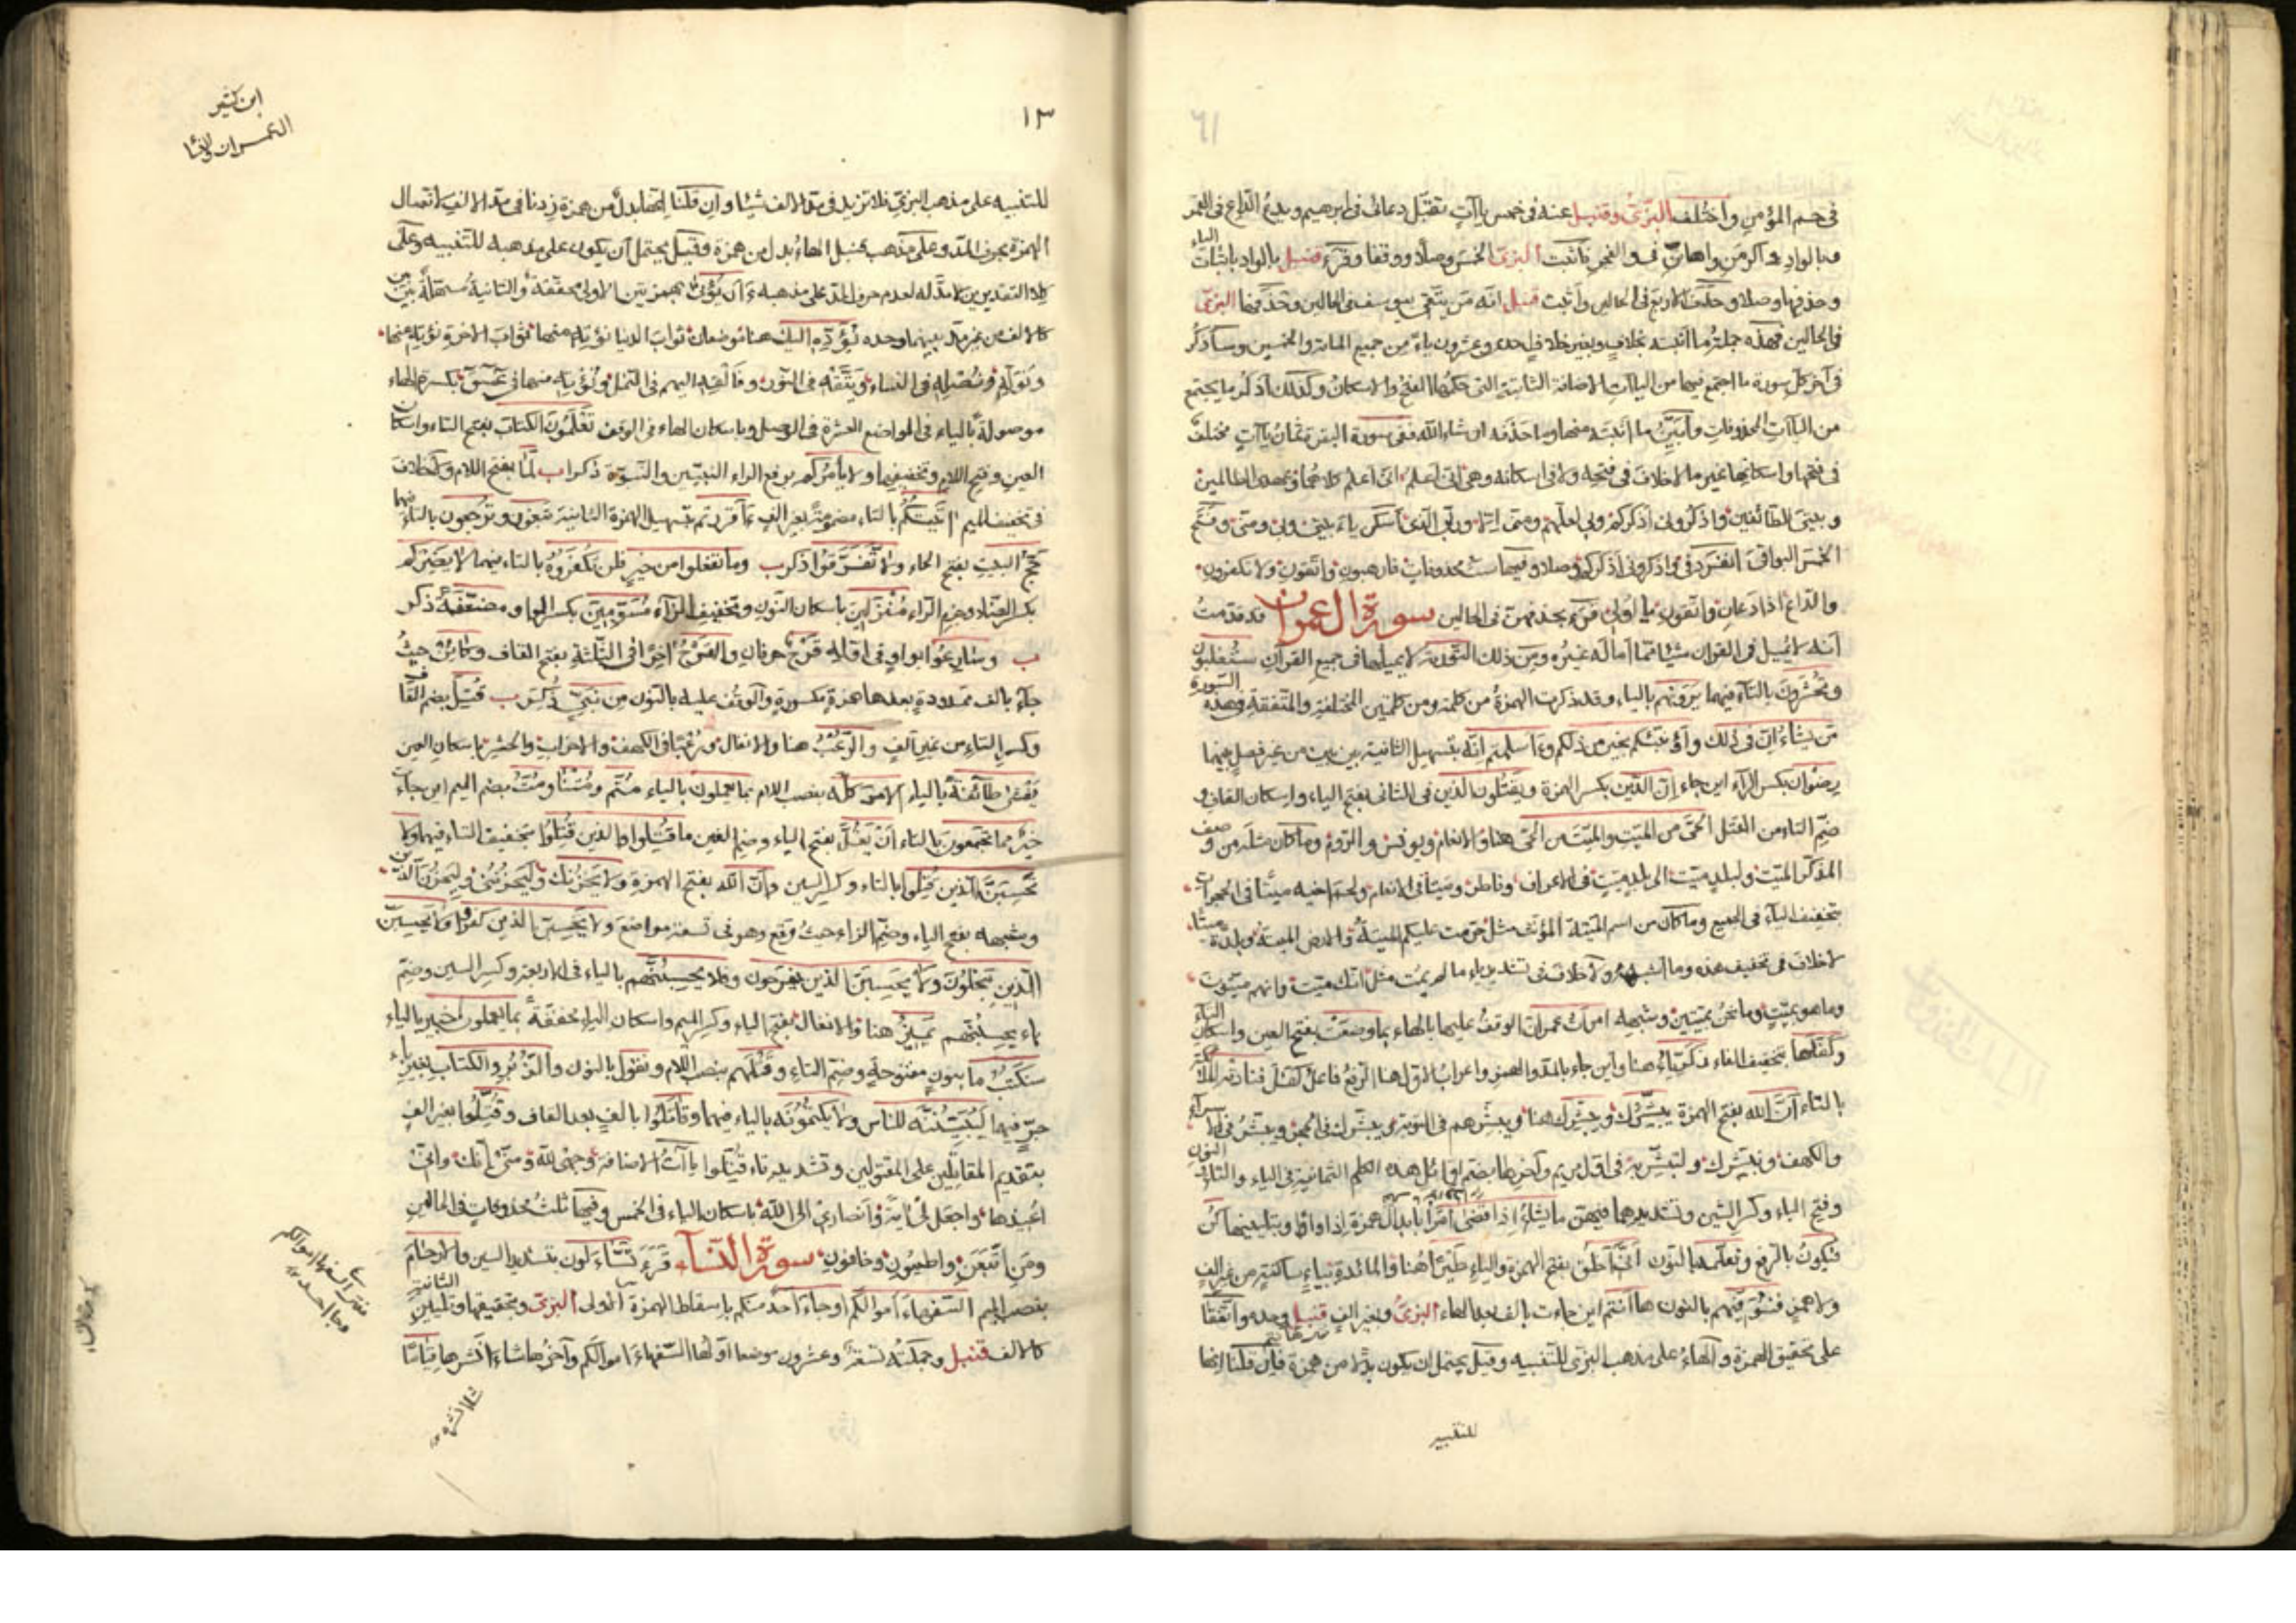 ٦١
في حم المؤمن واختلف البزي وقنبل عنه في خمس ياآت تقبل دعائي في ابرهيم ويدع الداع في القمر
وبالواد واكرمن واهانن في والفجر فاثبت البزي الخمس وصلا ووقفا وقرء قنبل بالواد باثبات الياء
وحذفها وصلا وحذف الاربع في الحالين واثبت قنبل انه من يتقي بيوسف في الحالين وحذفها البزي
في الحالين فهذه جملة ما اثبته بخلاف وبغير خلاف احدى وعشرون ياء من جميع المائة والخمسين وسأذكر
في آخر كل سورة ما اجتمع فيها من الياآت الاضافة الثابتة التي حكمها الفتح والاسكان وكذلك اذكر ما يجتمع
من الياآت المحذوفات وأبين ما اثبته منها وما حذفه ان شاء الله ففي سورة البقرة ثمان ياآت مختلف
في فتحها واسكانها غير ما لا خلاف في فتحه ولا في اسكانه وهي اني اعلم اني اعلم كلاهما وعهدي الظالمين
وبيتي للطائفين واذكروني اذكركم وبي لعلهم ومني الا وربي الذي اسكن ياء بيتي وبي ومني وفتح
الخمس البواقي انفرد في فاذكروني اذكركم وصلا وفيها ست محذوفات فارهبون واتقون ولا تكفرون
والداع اذا دعان واتقون يا اولي قرء بحذفهن في الحالين سورة ال عمران قد قدمت
أنه لا يميل في القران شيئا مما أماله غيره ومن ذلك التورية لا يميلها في جميع القرآن ستغلبون
وتحشرون بالتاء فيهما يرونهم بالياء وقد ذكرت الهمزة من كلمة ومن كلمتين المختلفة والمتفقة فهذه السورة
من يشاء ان في ذلك وأؤنبئكم بخير من ذلكم وءأسلمتم انه بتسهيل الثانية بين بين من غير فصل بينهما
رضوان بكسر الراء اين جاء إن الدين بكسر الهمزة ويقتلون الذين في الثاني بفتح الياء واسكان القاف و
ضم التاء من القتل الحي من الميت والميت من الحي هنا والانعام ويونس والروم وما كان مثله من وصف
المذكر الميت ولبلد ميت الى بلد ميت في الاعراف وفاطر وميتا في الانعام ولحم اخيه ميتا في الحجرات
بتخفيف الياء في الجميع وما كان من اسم الميتة المؤنث مثل حرمت عليكم الميتة والارض الميتة وبلدة ميتا
لا خلاف في تخفيف هذه وما اشبهه ولا خلاف في تشديد ياء ما لم يمت مثل انك ميت وانهم ميتون
وما هو بميت وما نحن بميتين وشبهه امرأت عمران الوقف عليها بالهاء بما وضعت بفتح العين واسكان التاء
وكفلها بتخفيف الفاء زكرياء هنا وأين جاء بالمد والهمز واعراب الاول هنا الرفع فاعل كفل فنادته الملائكة
بالتاء أن الله بفتح الهمزة يبشرك ويبشرك هنا ويبشرهم في التوبة ونبشرك في الحجر ويبشر في اسراء
والكهف ونبشرك ولتبشر به في اول مريم وآخرها بضم اوائل هذه الكلم الثمانية في الياء والتاء والنون
وفتح الباء وكسر الشين وتشديدهما فيهن ما يشاء اذا قضى امرا بابدال همزة إذا واوا وبتليينها كن
فيكون بالرفع ونعلمه بالنون أني اخلق بفتح الهمزة والياء طيرا هنا والمائدة بياء ساكنة من غير الف
ولا همز فنوفيهم بالنون هاانتم اين جاءت بالف بعد الهاء البزي وبغير الف قنبل وحده واتفقا
على تحقيق الهمزة والهاء على مذهب البزي للتنبيه وقيل يحتمل ان يكون بدلا من همزة فان قلنا انها
للتنبيه
١٣
ابن كثير
ال عمران والنسا
للتنبيه على مذهب البزي فلا نزيد في مد الالف شيئا وان قلنا انها بدل من همزة زدنا في مد الالف لاتصال
الهمزة بحرف المد وعلى مذهب قنبل الهاء بدل من همزة وقيل يحتمل أن يكون على مذهبه للتنبيه وعلى
كلا التقديرين لا مد له لعدم حرف المد على مذهبه ءأن يؤتى بهمزتين الاولى محققة والثانية مسهلة بين بين
كالالف من غير مد بينهما وحده يؤده اليك هنا موضعان ثواب الدنيا نؤته منها ثواب الآخرة نؤته منها
ونوله ونصله في النساء ويتقه في النون وفألقه اليهم في النمل ونؤته منها في عسق بكسر الهاء
موصولة بالياء في المواضع العشرة في الوصل وباسكان الهاء في الوقف تعلمون الكتاب بفتح التاء واسكان
العين وفتح اللام وتخفيفها ولا يأمركم برفع الراء النبيين والنبوة ذكرا ب لما بفتح اللام ولا خلاف
في تخفيف الميم اتيتكم بالتاء مضمومة بغير الف ءأقررتم بتسهيل الهمزة الثانية تبغون وترجعون بالتاء فيهما
حج البيت بفتح الحاء ولا تفرقوا ذكر ب وما تفعلوا من خير فلن تكفروه بالتاء فيهما لا يضركم
بكسر الضاد وجزم الراء منزلين باسكان النون وتخفيف الزاء مسومين بكسر الواو مضعفة ذكر
ب وسارعوا بواو في اوله قرح حرفان والقرح اخرا في الثلثة بفتح القاف وكائن حيث
جاء بالف ممدودة بعدها همزة مكسورة والوقف عليه بالنون من نبي ذكر ب قتل بضم القاف
وكسر التاء من غير الف والرعب هنا والانفال ورعبا في الكهف والاحزاب والحشر باسكان العين
يغشى طائفة بالياء الامر كله بنصب اللام بما يعملون بالياء متم ومتنا ومت بضم الميم اين جاءت
خير مما تجمعون بالتاء أن يغل بفتح الياء وضم الغين ما قتلوا والذين قتلوا بتخفيف التاء فيهما ولا
تحسبن الذين قتلوا بالتاء وكسر السين وأن الله بفتح الهمزة ولا يحزنك وليحزنني وليحزن الذين
وشبهه بفتح الياء وضم الزاء حيث وقع وهو في تسعة مواضع ولا يحسبن الذين كفروا ولا يحسبن
الذين يبخلون ولا يحسبن الذين يفرحون وفلا يحسبنهم بالياء في الاربعة وكسر السين وضم
باء يحسبنهم يميز هنا والانفال بفتح الياء وكسر الميم واسكان الياء مخففة بما يعملون خبير بالياء
سنكتب ما بنون مفتوحة وضم التاء وقتلهم بنصب اللام ونقول بالنون والزبر والكتاب بغير باء
جر فيهما ليبيننه للناس ولا يكتمونه بالياء فيهما وقاتلوا بالف بعد القاف وقتلوا بغير الف
بتقديم المقاتلين على المقتولين وتشديد تاء قتلوا ياآت الاضافة وجهي لله ومني إنك واني
اعيذها واجعل لي اية وانصاري الى الله باسكان الياء في الخمس وفيها ثلث محذوفات في الحالين
ومن اتبعن واطيعون وخافون سورة النساء قرء تساءلون بتشديد السين والارحام
بنصب الميم السفهاء اموالكم او جاء احد منكم باسقاط الهمزة الاولى البزي وبتحقيقها وتليين الثانية
كالالف قنبل وجملته تسعة وعشرون موضعا أولها السفهاء اموالكم وآخرها شاء انشره قياسا